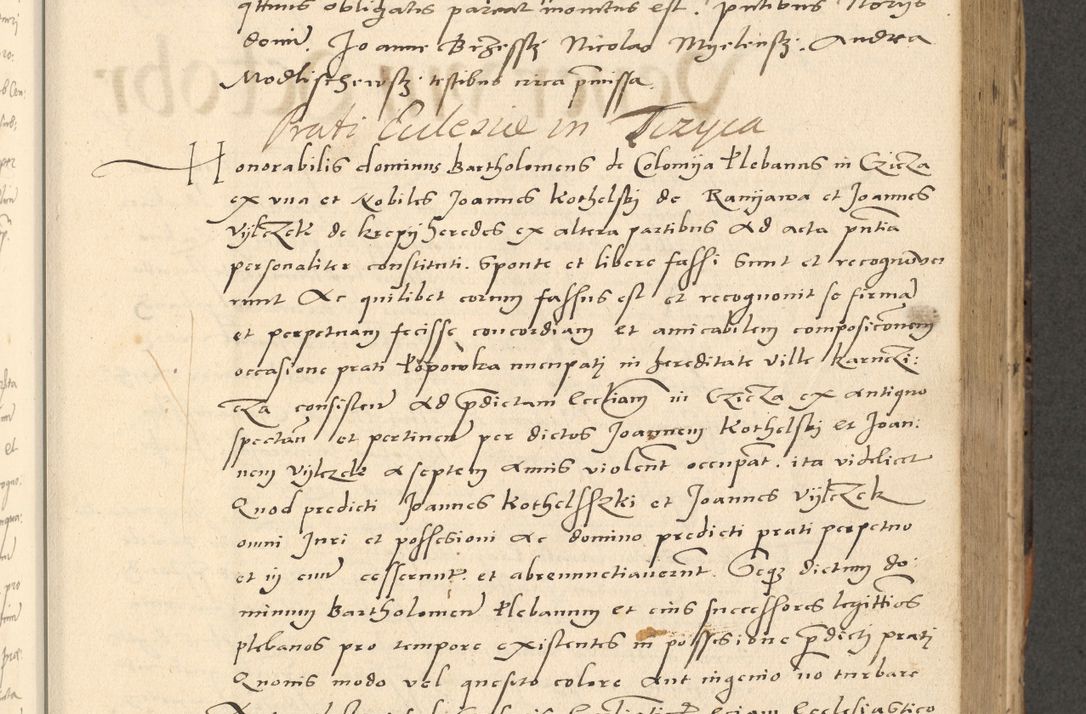 obligatis pareat monitus est. pntibus Nobys
domi. Joanne Brzessky Nicolao Myelensky. Andrea
Modlischewsky testibus circa pmissa.
Prati Eclesie in Czyca
Honorabilis dominus Bartholomeus de Colomija Plebanus in Czicza
ex vna et Nobiles Joannes Kothelsky de Ranijawa et Joannes
Vylczek de krepy heredes ex altera partibus ad acta pntia
personaliter constituti. Sponte et libere fassi sunt et recognouer
runt Ac quilibet eorum fassus est et recognouit se firma
et perpetuam fecisse concordiam et amicabilem composiconem
occasione prati Klopowka nuncpatj in hereditate ville karnczi:
cza consisten ad pdictam Eccliam in Cziczza ex antiquo
spectan et pertinen per dictos Joannem Kothelsky et Joan:
nem Vylczek a septem annis violent occupat. ita videlicet
Quod predicti Joannes Kothelsszki et Joannes Vylczek
omni Juri et possesioni ac dominio predicti prati perpetuo
et in eum cesserunt. et abrenunctiauerunt. Seqz dictum do:
minum Bartholomeu Plebanum et eius successores legittios
plebanos pro tempore existentes in possesione pdicti pratj
Quouis modo vel quesito colore aut ingenio no turbare